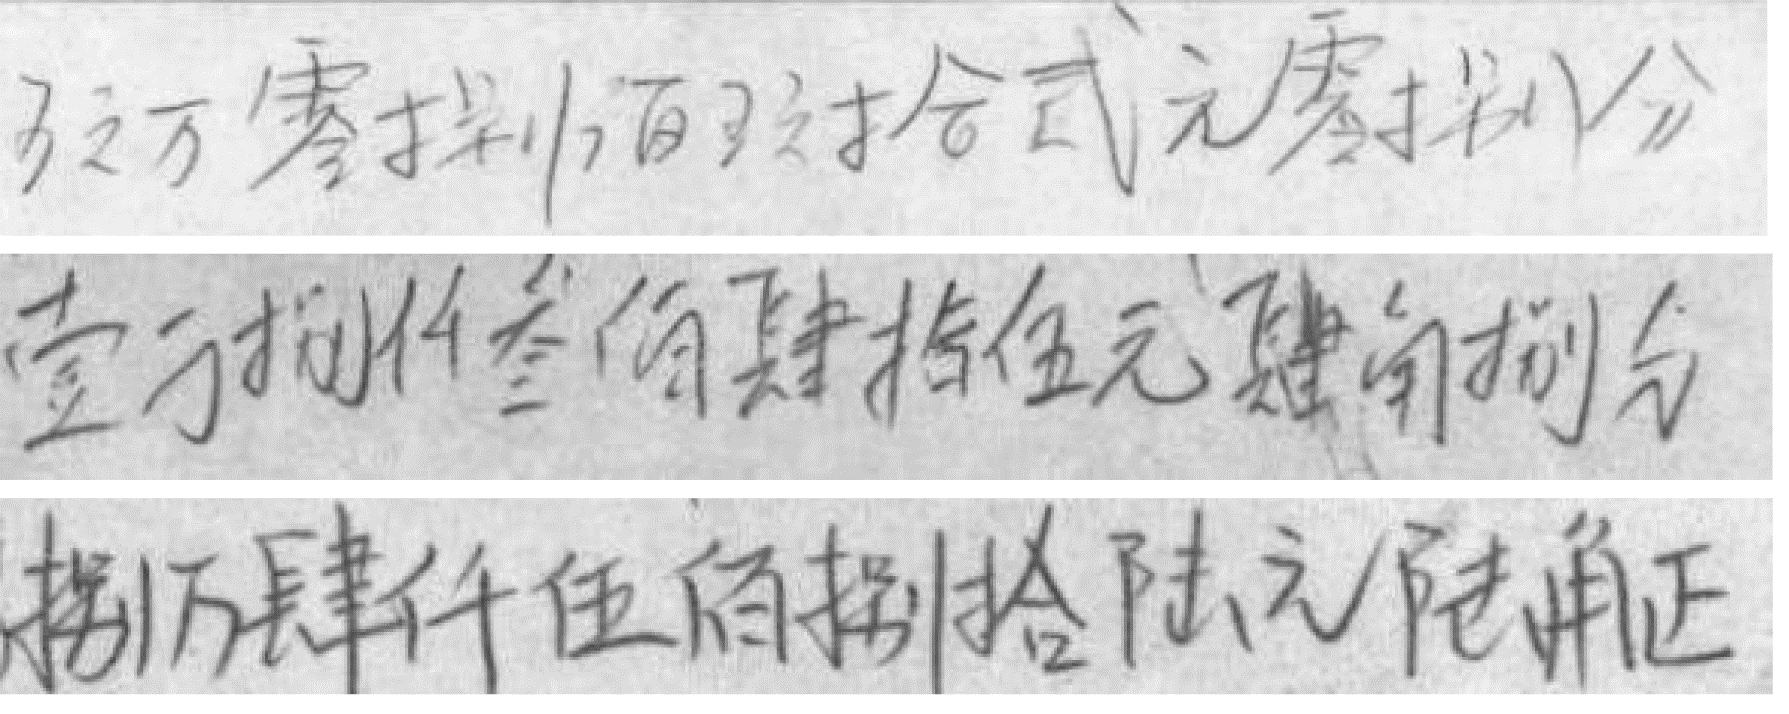 玖万零捌佰玖拾贰元零捌分
壹万捌仟叁佰肆拾伍元肆角捌分
捌万肆仟伍佰捌拾陆元陆角正